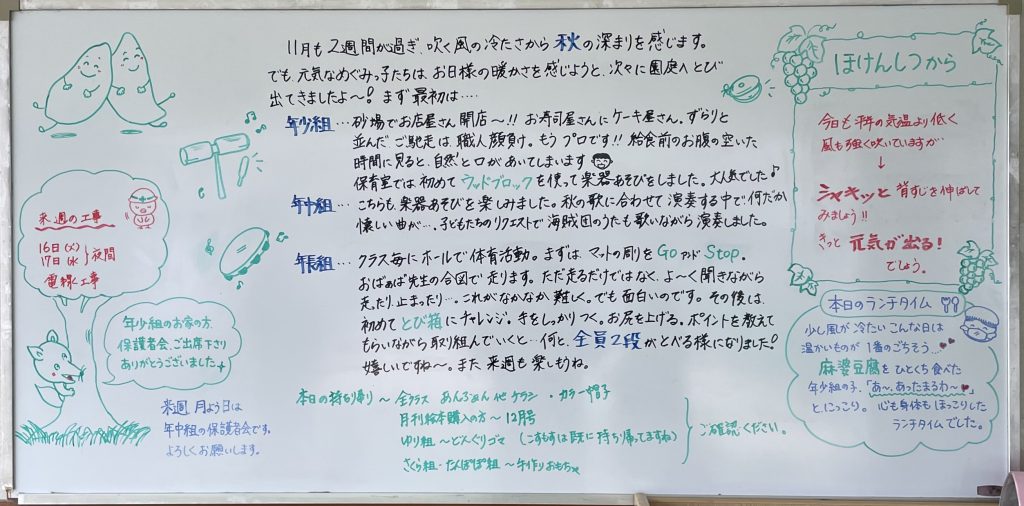 11月も2週間が過ぎ、吹く風の冷たさから秋の深まりを感じます。
でも、元気なめぐみっ子たちは、お日様の暖かさを感じようと、次々に園庭へとび
出てきましたよ〜！まず最初は‥‥
年少組…砂場でお店屋さん開店〜!!お寿司屋さんにケーキ屋さん。ずらりと
並んだご馳走は、職人顔負け。もうプロです!!給食前のお腹の空いた
時間に見ると、自然と口があいてしまいます
保育室では、初めてウッドブロックを使って楽器あそびをしました。大人気でした♪
年中組…こちらも楽器あそびを楽しみました。秋の歌に合わせて演奏する中で何だか
懐しい曲が…。子どもたちのリクエストで海賊団のうたも歌いながら演奏しました。
年長組…クラス毎にホールで体育活動。まずはマットの周りをGo アンド Stop。
おばぁぱ先生の合図で走ります。ただ走るだけではなく、よ〜く聞きながら
走ったり、止まったり…。これがなかなか難しく。でも面白いのです。その後は、
初めてとび箱にチャレンジ。手をしっかりつく。お尻を上げる。ポイントを教えて
もらいながら取り組んでいくと…何と、全員2段がとべる様になりました！
嬉しいですね〜。また、来週も楽しもうね。
本日の持ち帰り〜 全クラス あんぜんapケラン・カラー帽子
月刊絵本購入の方〜12月号
ゆり組〜どんぐりゴマ (こすもすは既に持ち帰ってますね)
さくら組・たんぽぽ組〜手作りおもちゃ
ご確認ください。
来週の工事
16日(火)
17日(水)
夜間
電線工事
年少組のお家の方、
保護者会、ご出席下さり
ありがとうございました
来週 月よう日は
年中組の保護者会です。
よろしくお願いします。
ほけんしつから
今日も平年の気温より低く
風も強く吹いていますが…
↓
シャキッと背すじを伸ばして
みましょう!!
きっと元気が出る！
でしょう。
本日のランチタイム
少し風が冷たいこんな日は
温かいものが1番のごちそう…
麻婆豆腐をひとくち食べた
年少組の子、「あ〜、あったまるわ〜」
と、にっこり。心も身体もほっこりした
ランチタイムでした。